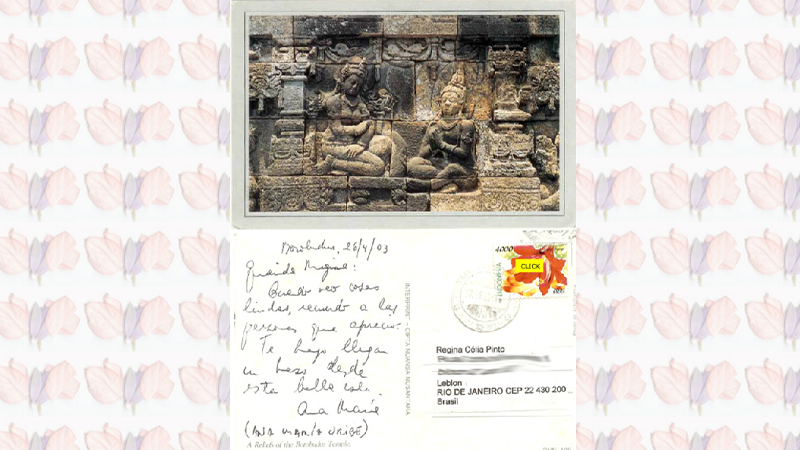 Borobudur, 26/4/03
Querida Regina:
Cuando veo cosas
lindas, recuerdo a las
personas que aprecio.
Te hago llegar
un beso desde
esta bella isla.
Ana María
(ANA MARÍA URIBE)
A Reliefs of the Borobudur Temple
INTERPRINT - CIPTA NUANSA NUSANTARA
4000
INDONESIA
CLICK
Regina Célia Pinto
Leblon
RIO DE JANEIRO CEP 22 430 200
Brasil